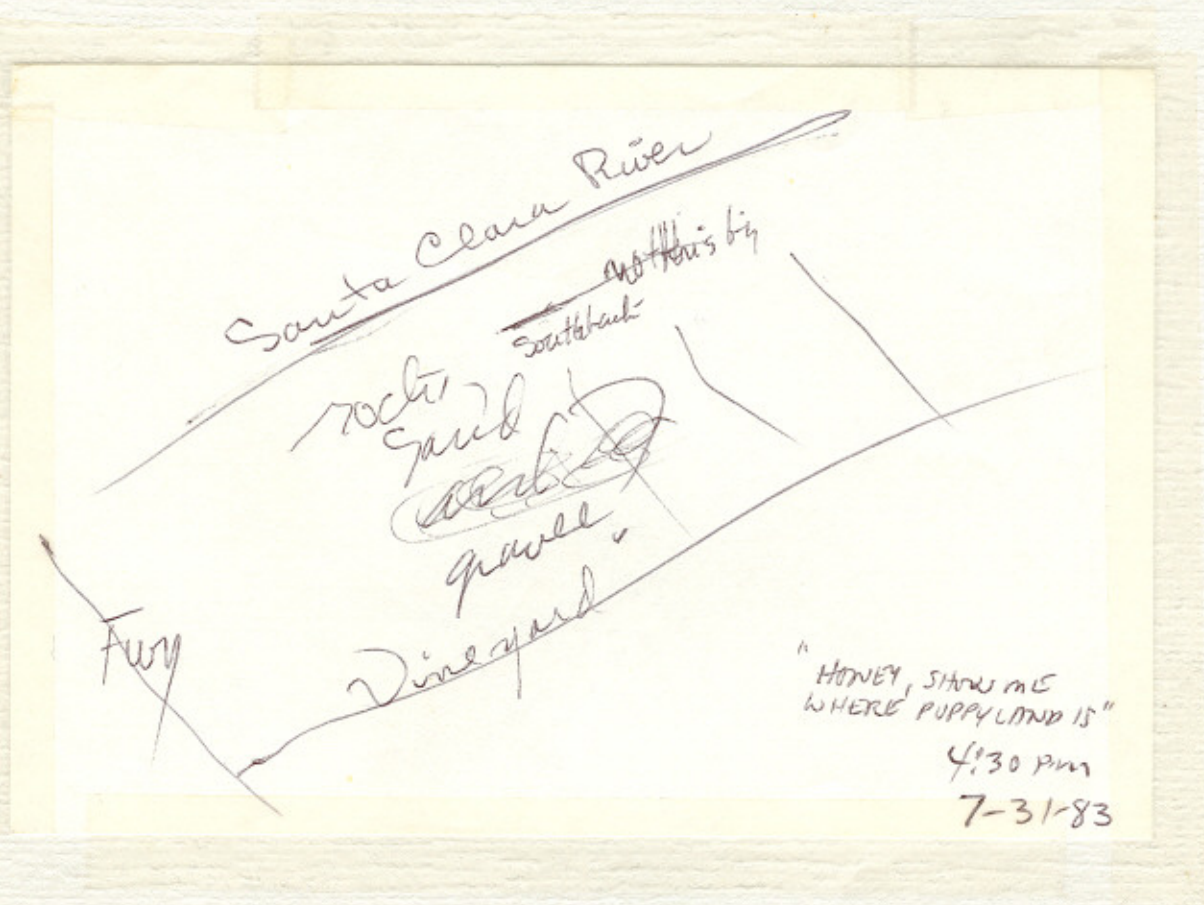 Santa Clara River
not this big
Southbank
rocks
sand
gravel
Vineyard
Fwy
"HONEY, SHOW ME
WHERE PUPPYLAND IS"
4:30 PM
7-31-83